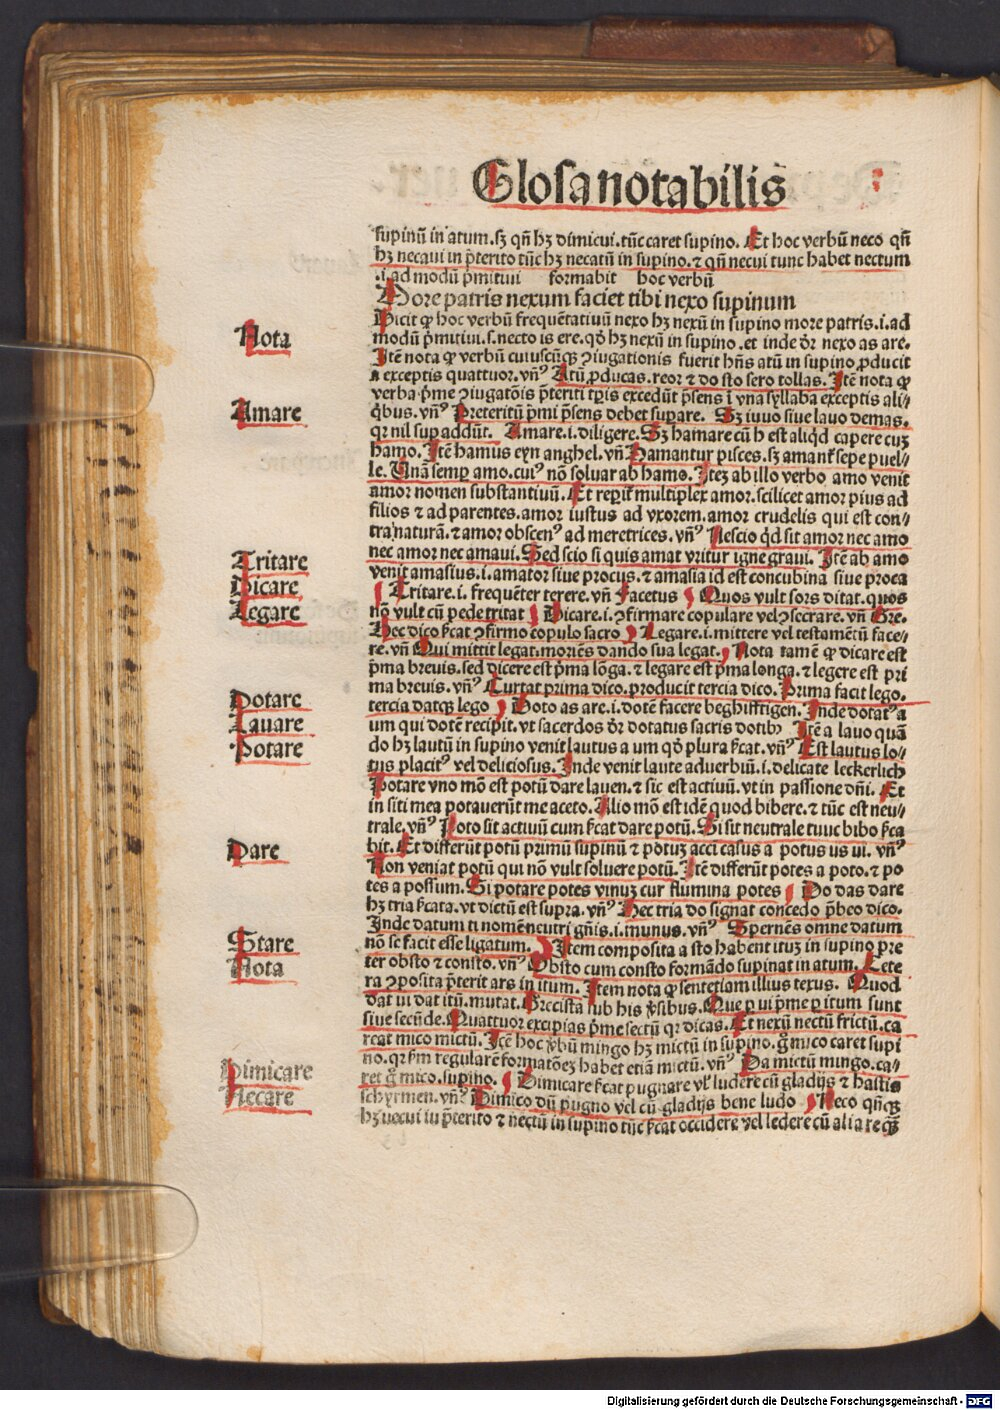 Glosa notabilis
supinū in atum. sꝫ qñ hꝫ dimicui. tūc caret supino. Et hoc verbū neco qñ
hꝫ necaui in p̄terito tūc hꝫ necatū in supino. ⁊ qñ necui tunc habet nectum
.i. ad modū p̄mitiui formabit hoc verbū
More patris nexum faciet tibi nexo supinum
Nota
Dicit ꝙ hoc verbū frequētatiuū nexo hꝫ nexū in supino more patris .i. ad
modū p̄mitiui .s. necto is ere. qð hꝫ nexū in supino. et inde ðr nexo as are.
Itē nota ꝙ verbū cuiuscūqꝫ ꝯiugationis fuerit hñs atū in supino ꝓducit
a exceptis quattuor. vñꝰ Atū ꝓducas. reor ⁊ do sto sero tollas. Itē nota ꝙ
verba p̄me ꝯiugatōis p̄teriti tp̄is excedūt p̄sens ī vna syllaba exceptis ali⸗
q̇bus. vñꝰ Preteritū p̄mi p̄sens debet supare. Sꝫ iuuo siue lauo demas.
Amare
qr nil sup addūt. Amare .i. diligere. Sꝫ hamare cū h est aliqd capere cuꝫ
hamo. Itē hamus eyn anghel. vñ Hamantur pisces. sꝫ amant̄ sepe puel⸗
le. Unā semp amo. cuiꝰ nō soluar ab hamo. Iteꝫ ab illo verbo amo venit
amor nomen substantiuū. Et repit̄ multiplex amor. scilicet amor pius ad
filios ⁊ ad parentes. amor iustus ad vxorem. amor crudelis qui est con⸗
tra naturā. ⁊ amor obscenꝰ ad meretrices. vñꝰ Nescio qd sit amor nec amo
nec amor nec amaui. Sed scio si quis amat vritur igne graui. Itē ab amo
venit amasius .i. amator siue procus. ⁊ amasia id est concubina siue proca
Tritare
Dicare
Legare
Tritare .i. freq̄uēter terere. vñ Facetus Quos vult sors ditat. quos
nō vult cū pede tritat Dicare .i. ꝯfirmare copulare vel ꝯsecrare. vñ Gre.
Hec dico ſcat ꝯfirmo copulo sacro Legare .i. mittere vel testamētū face⸗
re. vñ Qui mittit legat. moriēs dando sua legat. Nota tamē ꝙ dicare est
p̄ma breuis. sed dicere est p̄ma lōga. ⁊ legare est p̄ma longa. ⁊ legere est pri
ma breuis. vñꝰ Curtat prima dico. producit tercia dico. Prima facit lego.
Dotare
Lauare
Potare
tercia datqꝫ lego Doto as are .i. dotē facere beghifftigen. Inde dotatꝰ a
um qui dotē recipit. vt sacerdos ðr dotatus sacris dotibꝫ Itē a lauo quā
do hꝫ lautū in supino venit lautus a um qð plura ſcat. vñꝰ Est lautus lo⸗
tus placitꝰ vel deliciosus. Inde venit laute aduerbiū .i. delicate leckerlich
Potare vno mō est potū dare lauen. ⁊ sic est actiuū. vt in passione dñi. Et
in siti mea potauerūt me aceto. Alio mō est idē quod bibere. ⁊ tūc est neu⸗
trale. vñꝰ Poto sit actiuū cum ſcat dare potū. Si sit neutrale tunc bibo ſca
Dare
bit. Et differūt potū primū supinū ⁊ potuꝫ acci casus a potus us ui. vñꝰ
Non veniat potū qui nō vult soluere potū. Itē differūt potes a poto. ⁊ po
tes a possum. Si potare potes vinuꝫ cur flumina potes Do das dare
hꝫ tria ſcata. vt dictū est supra. vñꝰ Hec tria do signat concedo p̄beo dico.
Inde datum ti nomē neutri gñis .i. munus. vñꝰ Spernēs omne datum
Stare
Nota
nō se facit esse ligatum. Item composita a sto habent ituꝫ in supino pre
ter obsto ⁊ consto. vñꝰ Obsto cum consto formādo supinat in atum. Cete
ra ꝯposita p̄terit ars in itum. Item nota ꝙ sentētiam illius texus. Quod
dat ui dat itū. mutat. Precista sub his ꝟsibus. Que p ui p̄me p itum sunt
siue secūde. Quattuor excipias p̄me sectū qr dicas. Et nexū nectū frictū. ca
reat mico mictū. Itē hoc ꝟbū mingo hꝫ mictū in supino. g̊ mico caret supi
no. qr ſm regularē formatōeꝫ habet etiā mictū. vñꝰ Da mictū mingo. ca⸗
Dimicare
Necare
ret g̊ mico. supino. Dimicare ſcat pugnare vl̓ ludere cū gladijs ⁊ hastis
schyrmen. vñꝰ Dimico dū pugno vel cū gladijs bene ludo Neco qñqꝫ
hꝫ necui in p̄terito ⁊ nectū in supino tūc ſcat occidere vel ledere cū alia re qꝫ
Digitalisierung gefördert durch die Deutsche Forschungsgemeinschaft - DFG